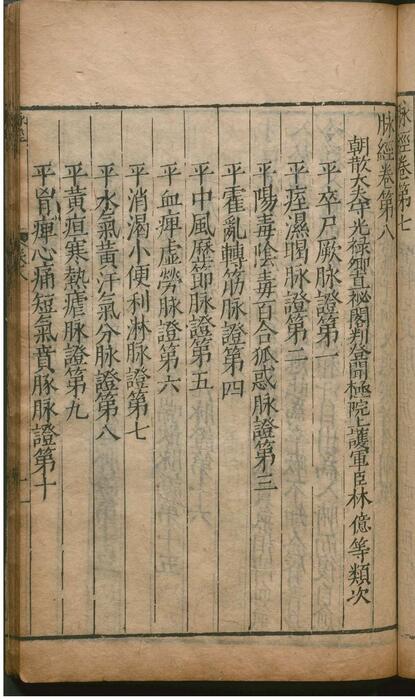 脉經卷第七
脉經卷第八
朝散大夫守光禄卿直祕閣判登聞檢院上護軍臣林億等類次
平卒尸厥脉證第一
平痓濕暍脉證第二
平陽毒陰毒百合狐惑脉證第三
平霍亂轉筋脉證第四
平中風歷節脉證第五
平血痺虛勞脉證第六
平消渴小便利淋脉證第七
平水氣黄汗氣分脉證第八
平黄疸寒熱瘧脉證第九
平胷痺心痛短氣賁豚脉證第十